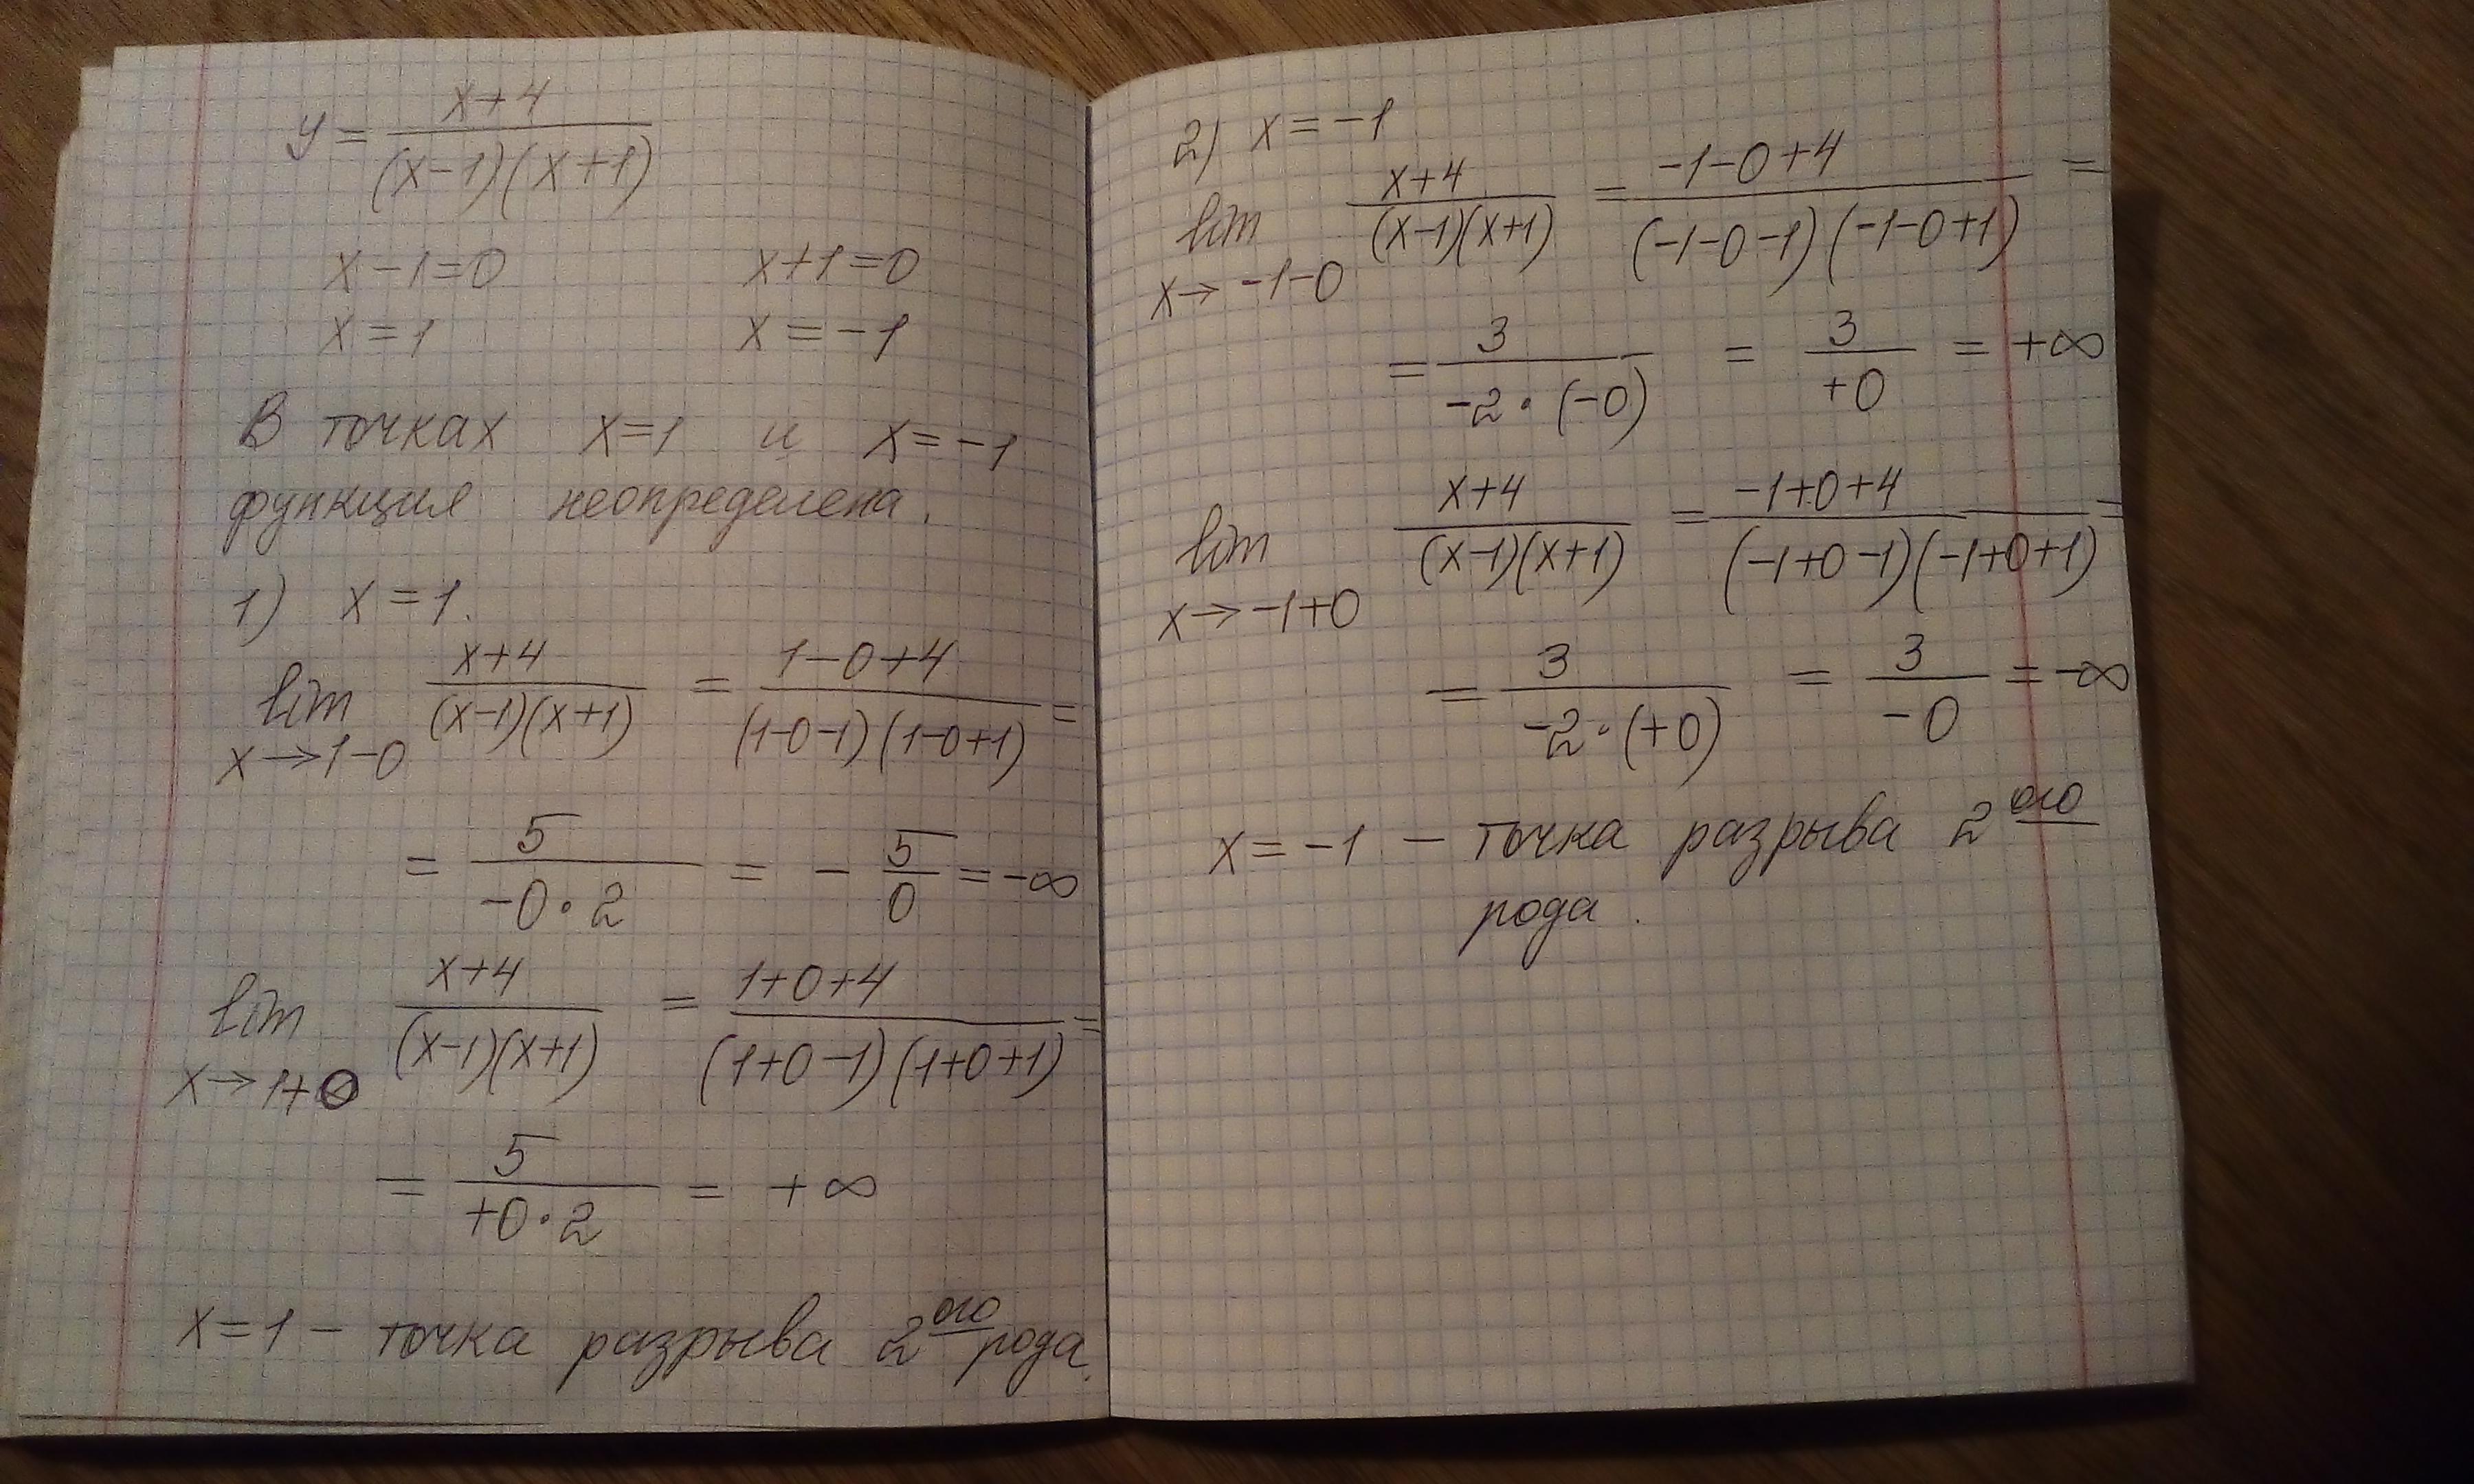 y = (x+4)/((x-1)(x+1))
x-1=0 x+1=0
x=1 x=-1
В точках x=1 и x=-1
функция неопределена.
1) x=1.
lim x→1-0 (x+4)/((x-1)(x+1)) = (1-0+4)/((1-0-1)(1-0+1)) =
= 5/(-0·2) = -5/0 = -∞
lim x→1+0 (x+4)/((x-1)(x+1)) = (1+0+4)/((1+0-1)(1+0+1)) =
= 5/(+0·2) = +∞
x=1 – точка разрыва 2ого рода.
2) x=-1
lim x→-1-0 (x+4)/((x-1)(x+1)) = (-1-0+4)/((-1-0-1)(-1-0+1)) =
= 3/(-2·(-0)) = 3/(+0) = +∞
lim x→-1+0 (x+4)/((x-1)(x+1)) = (-1+0+4)/((-1+0-1)(-1+0+1)) =
= 3/(-2·(+0)) = 3/(-0) = -∞
x=-1 – точка разрыва 2ого
рода.